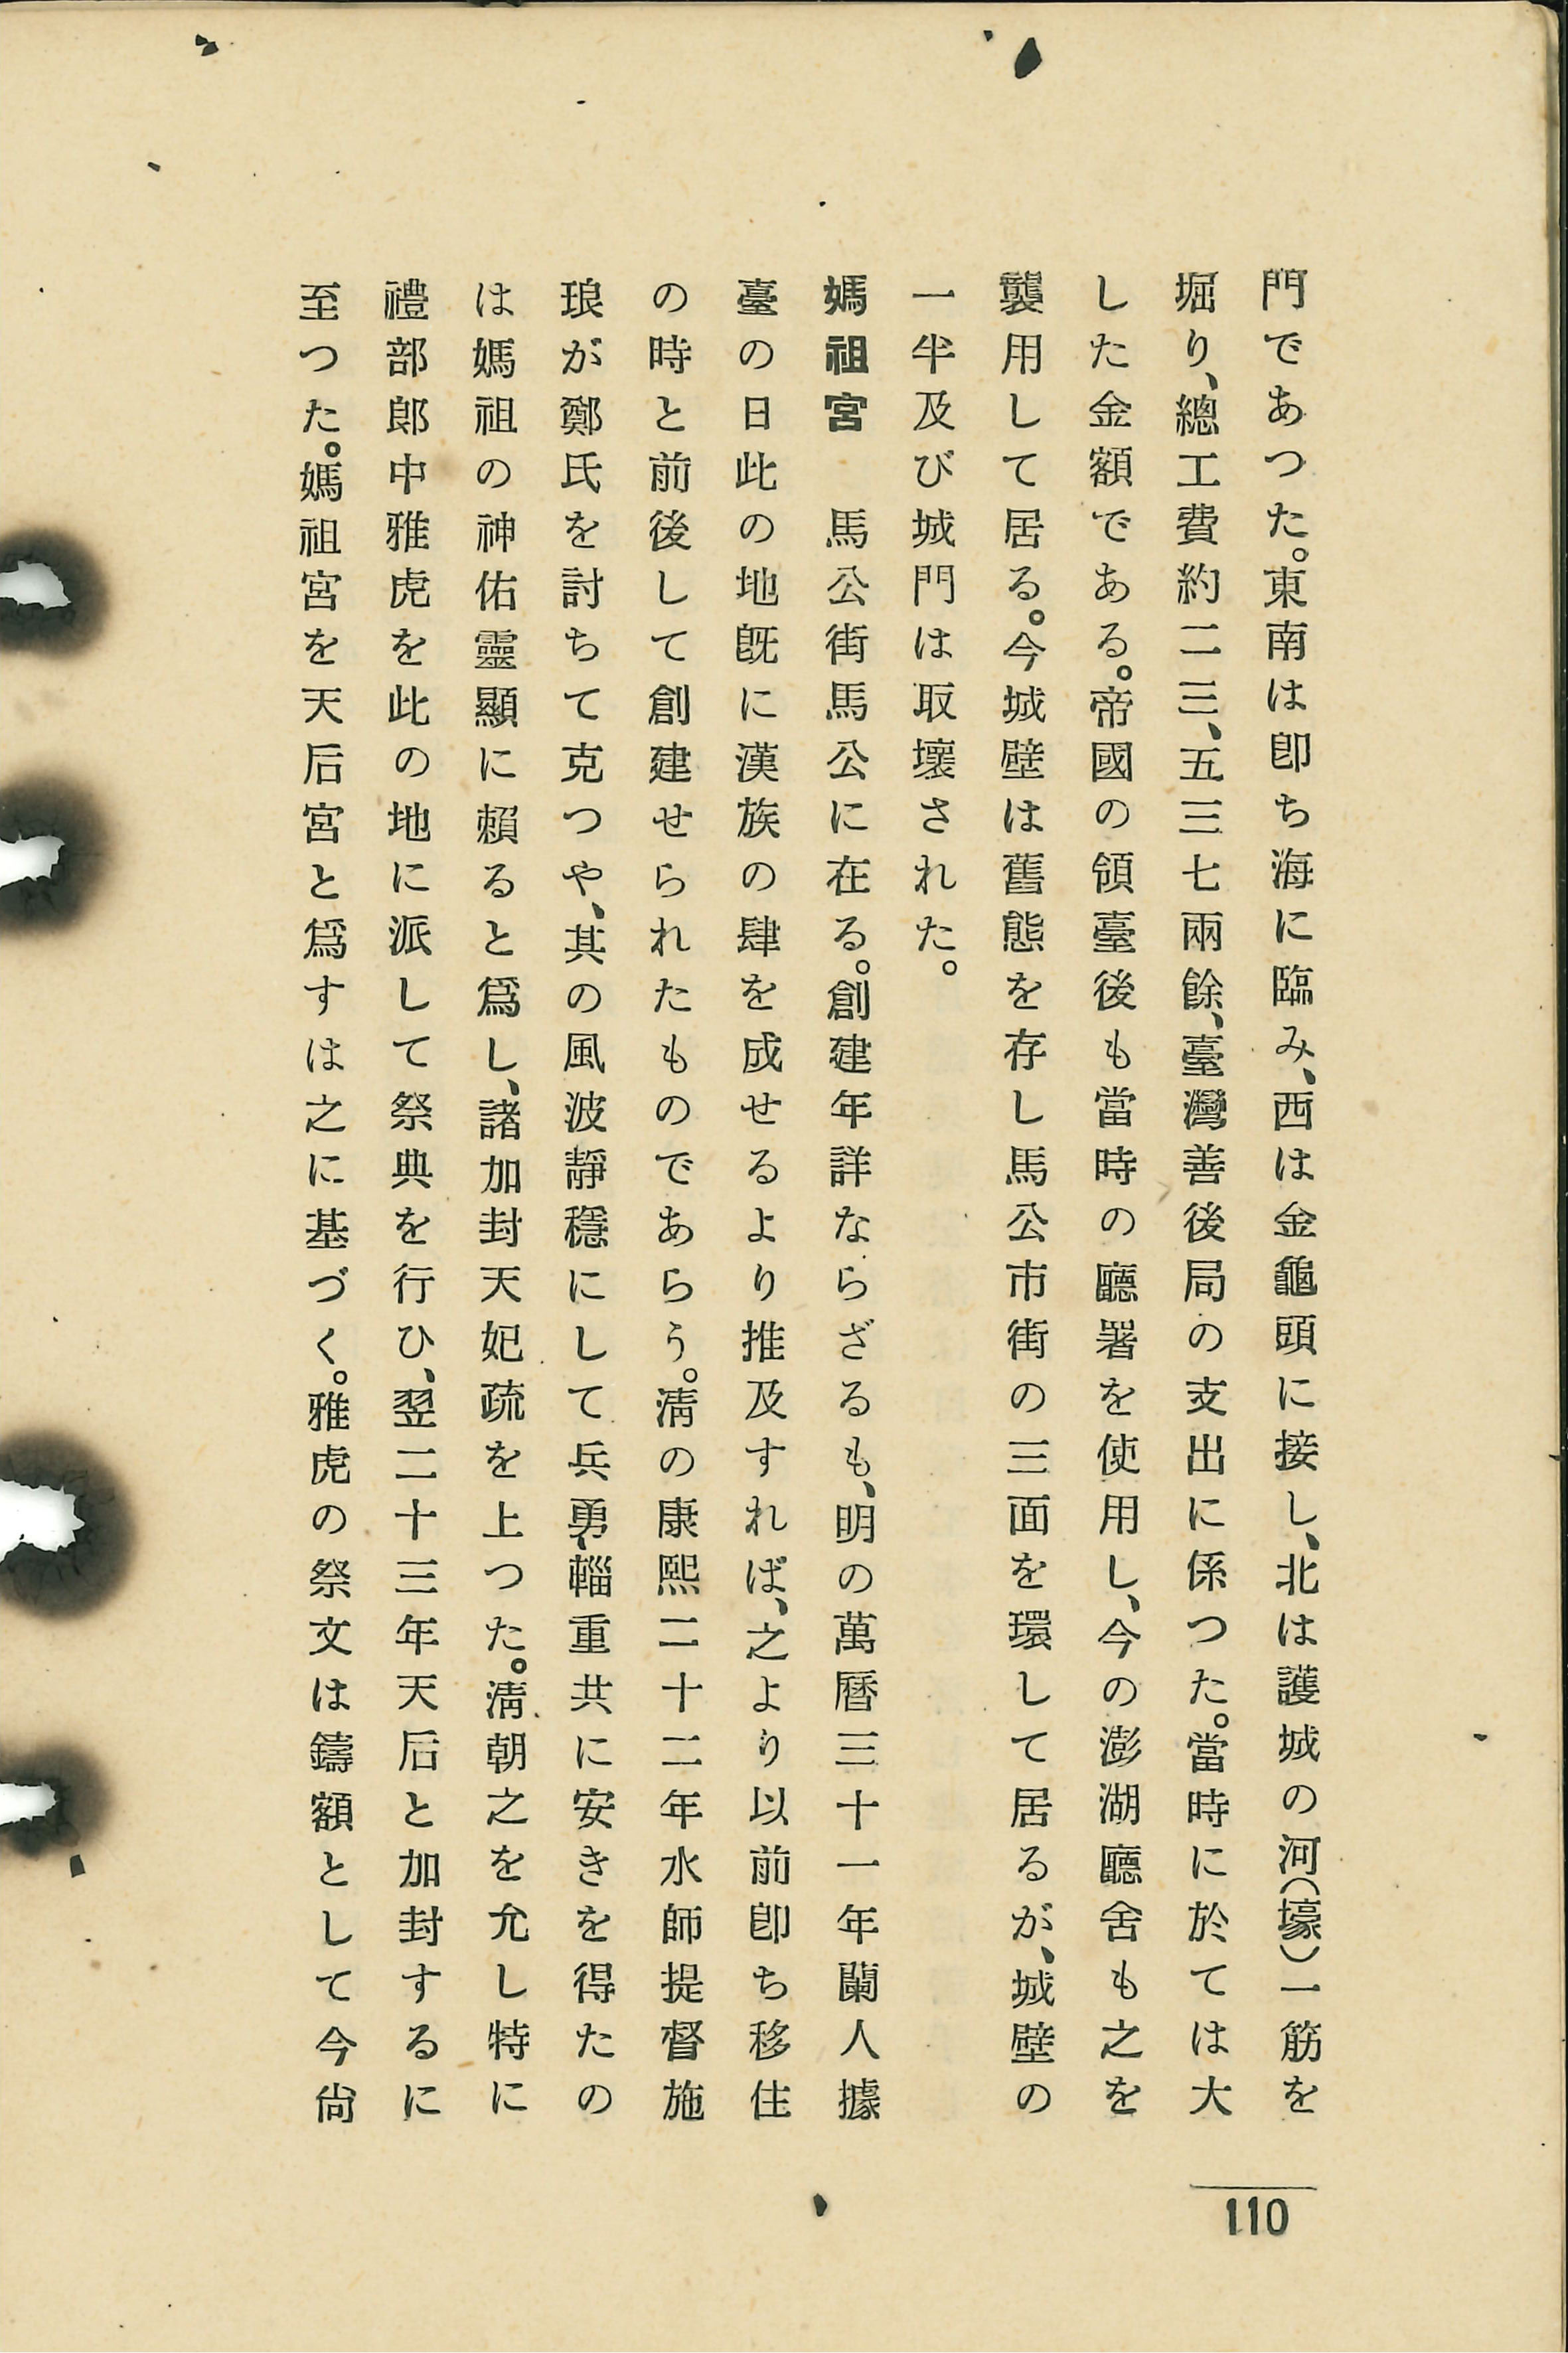 門であつた。東南は卽ち海に臨み、西は金龜頭に接し、北は護城の河(壕)一筋を
堀り、總工費約二三、五三七兩餘、臺灣善後局の支出に係つた。當時に於ては大
した金額である。帝國の領臺後も當時の廳署を使用し、今の澎湖廳舍も之を
襲用して居る。今城壁は舊態を存し馬公市街の三面を環して居るが、城壁の
一半及び城門は取壞された。
媽祖宮　馬公街馬公に在る。創建年詳ならざるも、明の萬曆三十一年蘭人據
臺の日此の地旣に漢族の肆を成せるより推及すれば、之より以前卽ち移住
の時と前後して創建せられたものであらう。淸の康熙二十二年水師提督施
琅が鄭氏を討ちて克つや、其の風波靜穩にして兵勇、輜重共に安きを得たの
は媽祖の神佑靈顯に賴ると爲し、諸加封天妃疏を上つた。淸朝之を允し特に
禮部郎中雅虎を此の地に派して祭典を行ひ、翌二十三年天后と加封するに
至つた。媽祖宮を天后宮と爲すは之に基づく。雅虎の祭文は鑄額として今尙
110